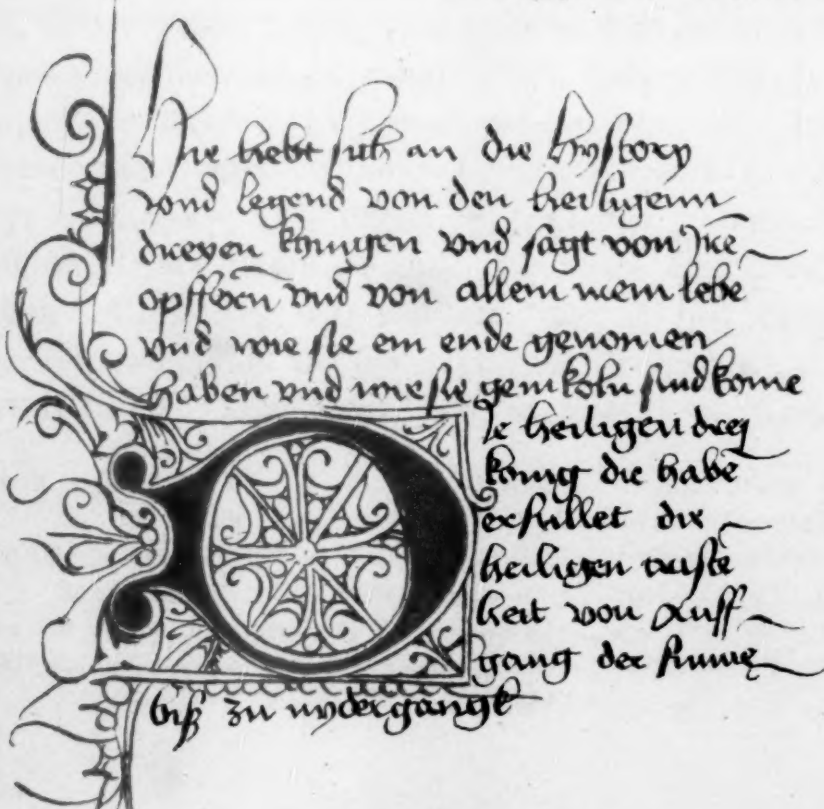 Hie hebt sich an die hystory
vnd legend von den heiligenn
dreyen konigen vnd sagt von Jrē
opffern vnd von allem irem lebē
vnd wie sie ein ende genomen
haben vnd wie sie gein koln sind komē
Die heiligen drey
konig die habē
erfullet die
heiligen cristē
heit von Auff
gang der sunnē
biß zu nydergangk